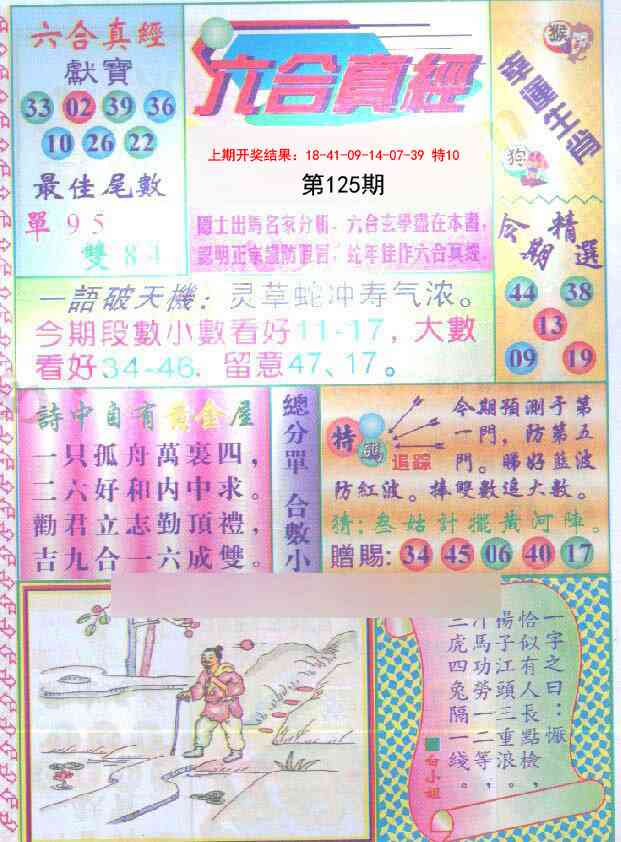 六合真經
獻寶
33 02 39 36
10 26 22
最佳尾數
單 9 5
雙 8 4
六合真經
上期开奖结果：18-41-09-14-07-39 特10
第125期
隱士出馬名家分析．六合玄學盡在本書，
認明正宗謹防假冒，蛇年佳作六合真經．
猴
幸運生肖
狗
今期
精選
44 38
13
09 19
一語破天機：灵草蛇冲寿气浓。
今期段數小數看好11-17，大數
看好34-46．留意47、17。
詩中自有黃金屋
一只孤舟萬裏四，
二六好和内中求。
勸君立志勤頂禮，
吉九合一六成雙。
總分單 合數小
特
追踪
今期預測予第
一門，防第五
門。睇好藍波
防紅波。捧雙數追大數。
猜：叁姑計擺黃河陣。
贈賜：34 45 06 40 17
一字之曰：懨
恰似有人長點檢，
楊子江頭三重浪，
汗馬功勞一二等，
三虎四兔隔一綫。
白小姐